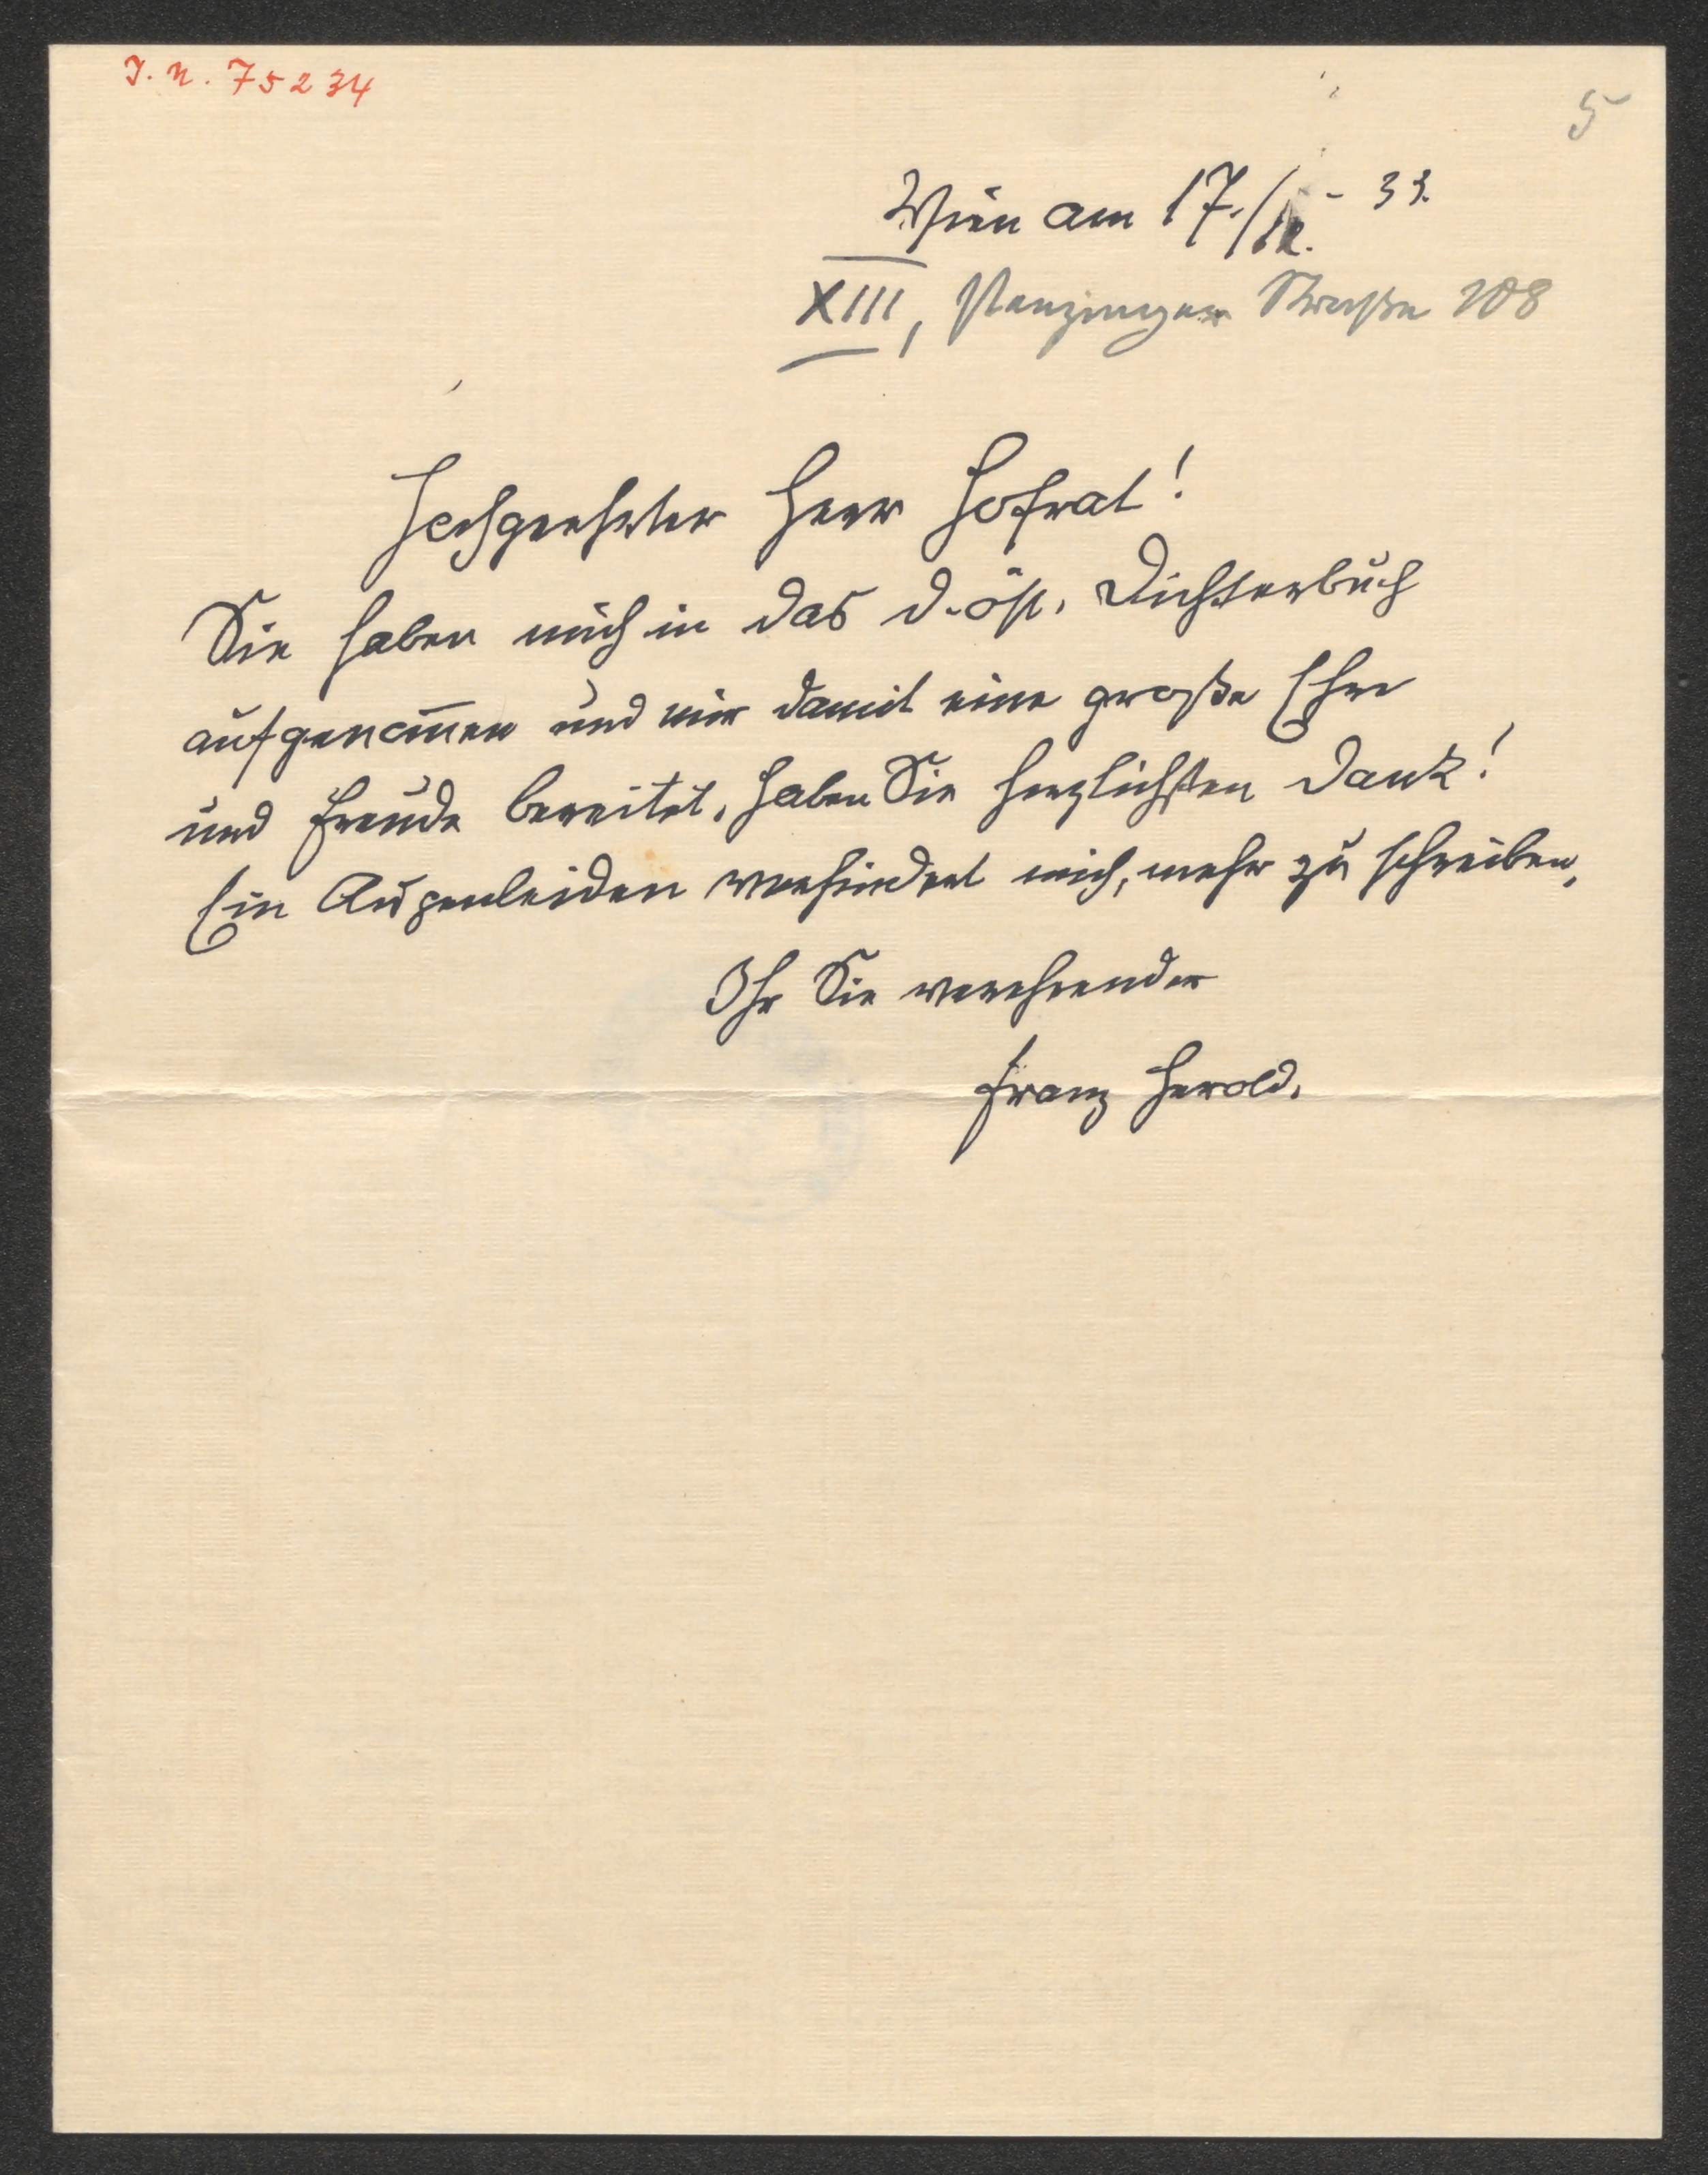 I. N. 75234
5
Wien am 17./12. - 33.
XIII, Penzinger Straße 108
Hochgeehrter Herr Hofrat!
Sie haben mich in das d.öst. Dichterbuch
aufgenom̄en und mir damit eine große Ehre
und Freude bereitet. Haben Sie herzlichsten Dank!
Ein Augenleiden verhindert mich, mehr zu schreiben.
Ihr Sie verehrender
Franz Herold.